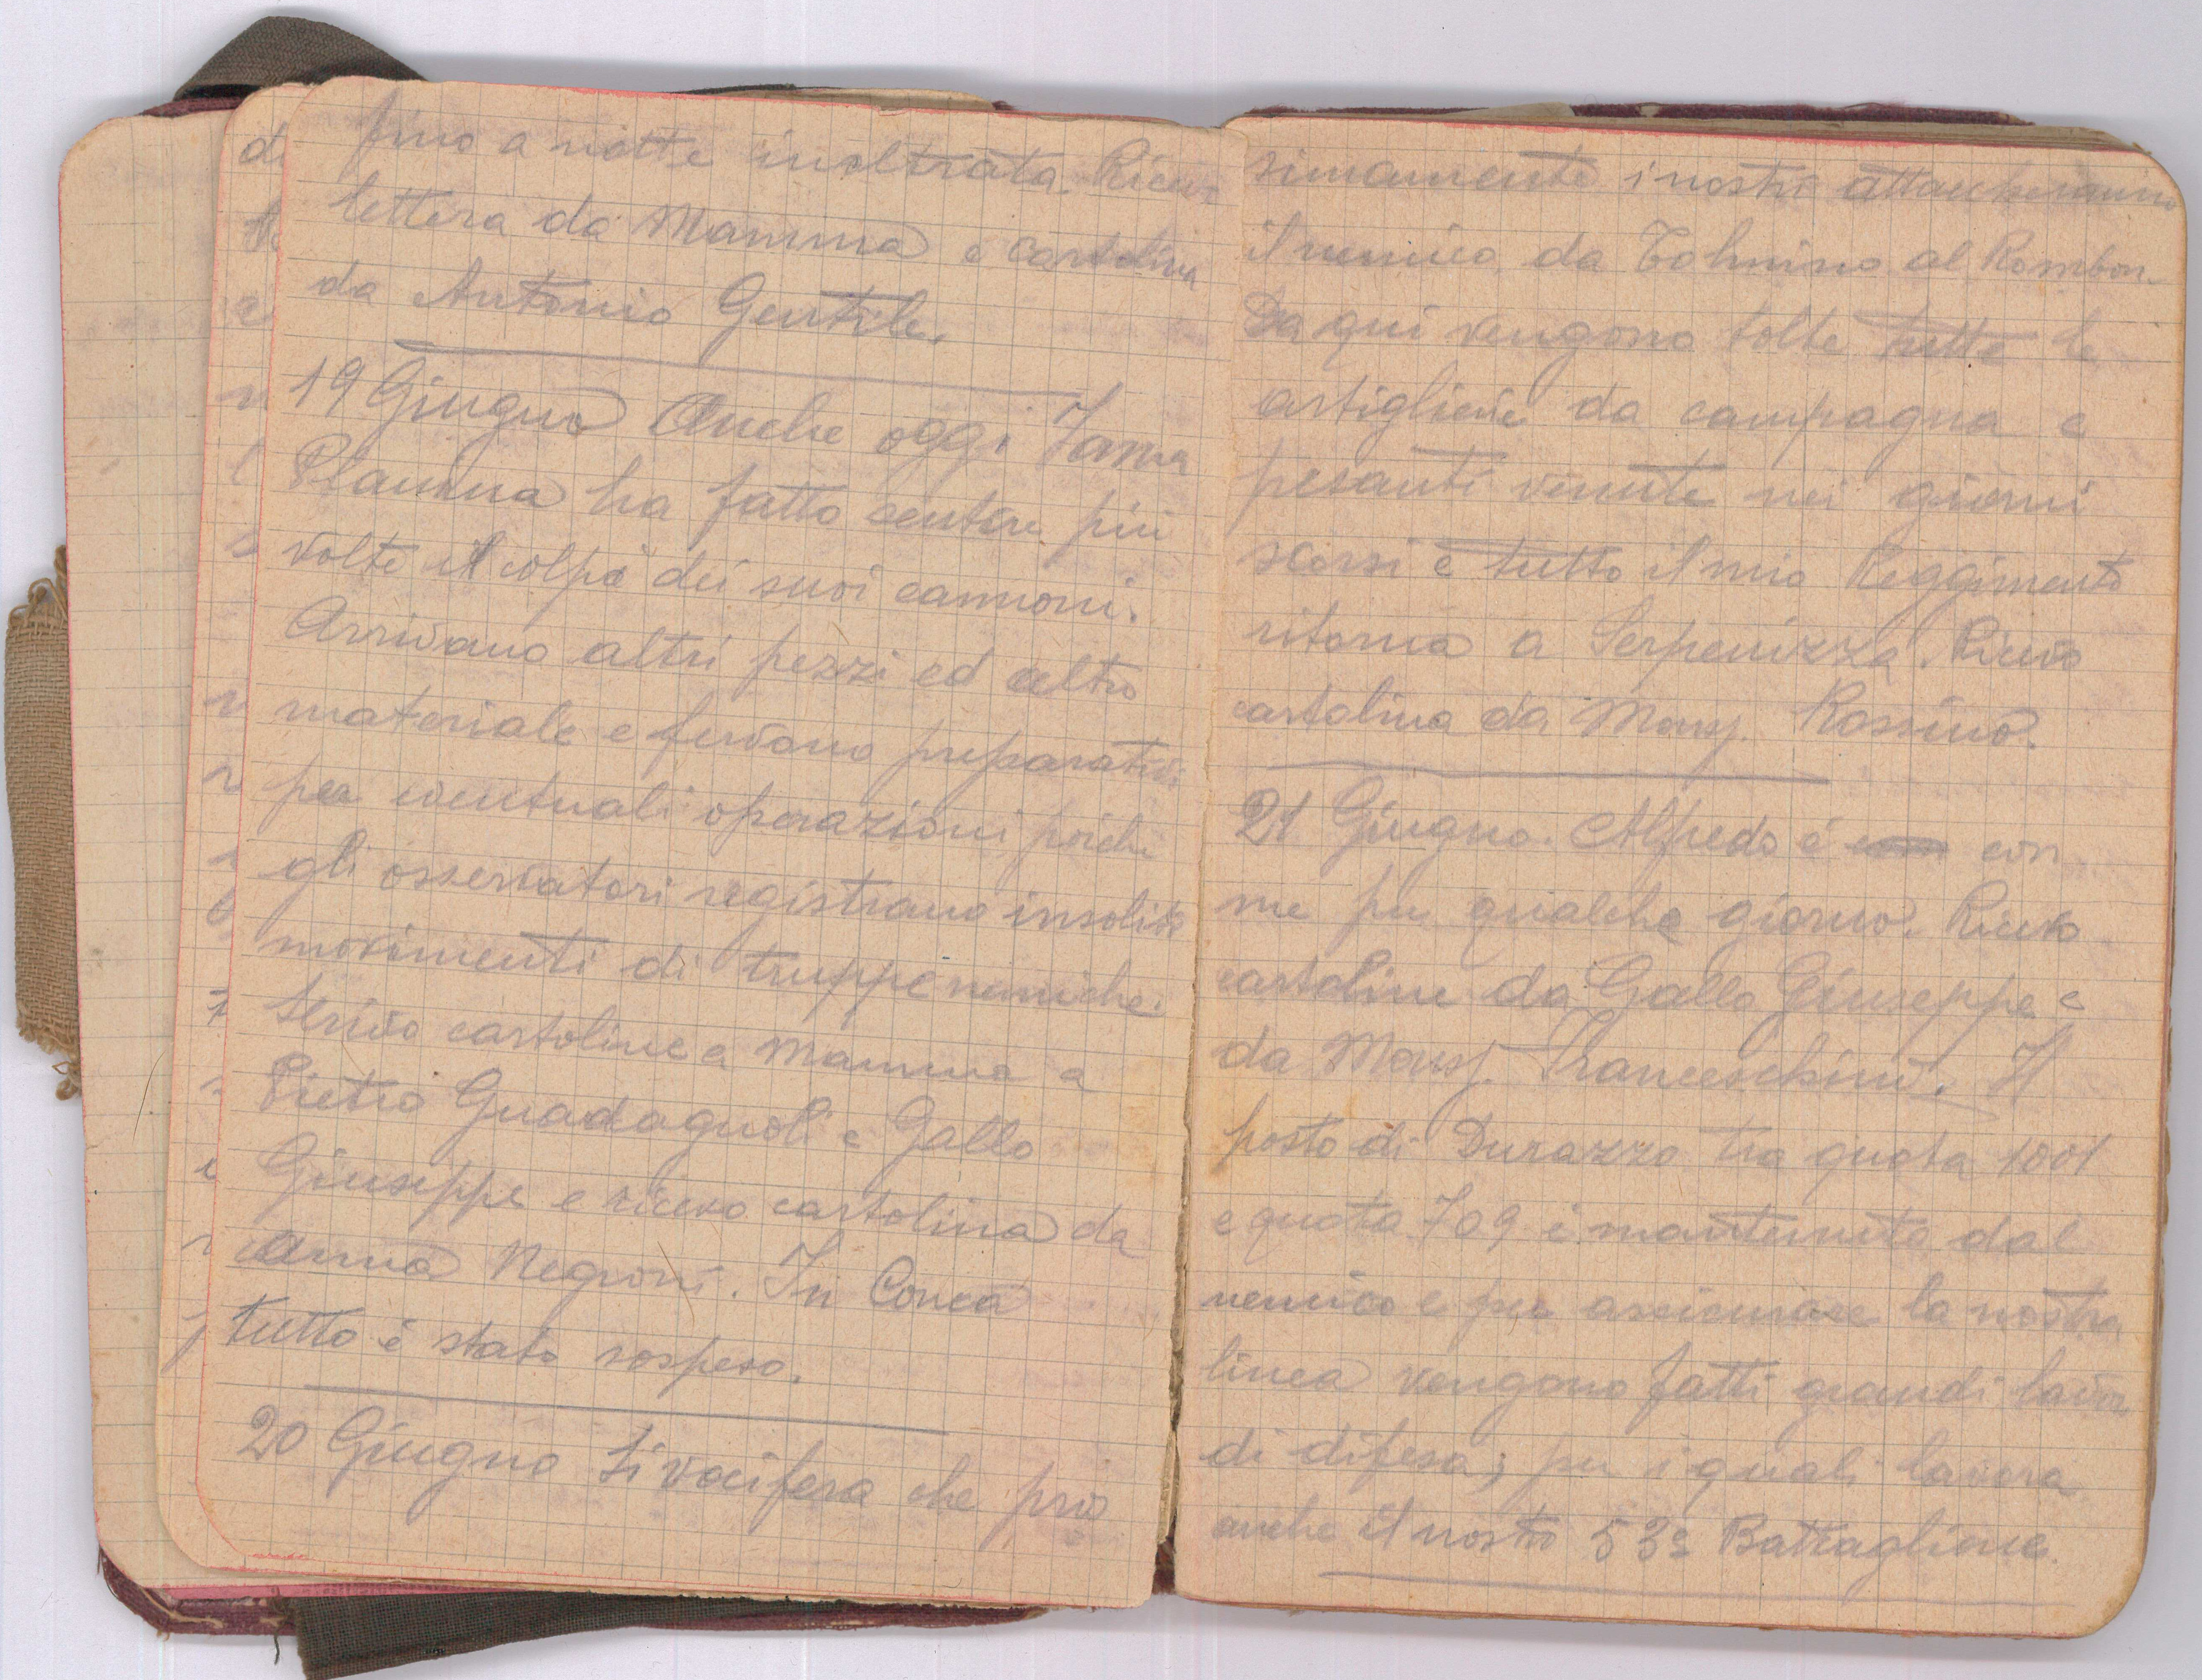 fino a notte inoltrata. Ricevo
lettera da Mamma e cartolina
da Antonio Gentile.
19 Giugno Anche oggi Jama
Planina ha fatto sentire più
volte il colpo dei suoi cannoni.
Arrivano altri pezzi ed altro
materiale e fervono preparativi
per eventuali operazioni, poichè
gli osservatori registrano insoliti
movimenti di truppe nemiche.
Scrivo cartoline a Mamma a
Pietro Guadagnoli e Gallo
Giuseppe e ricevo cartolina da
Anna Negroni. In Conca
tutto è stato sospeso.
20 Giugno Si vocifera che pros
simamente i nostri attaccheranno
il nemico da Tolmino al Rombon.
Da qui vengono tolte tutte le
artiglierie da campagna e
pesanti venute nei giorni
scorsi e tutto il mio Reggimento
ritorna a Serpenizza. Ricevo
cartolina da Mons. Rossino.
21 Giugno. Alfredo è con
me per qualche giorno. Ricevo
cartoline da Gallo Giuseppe e
da Mons. Franceschino. Il
posto di Durazzo tra quota 1001
e quota 709 è mantenuto dal
nemico e per assicurare la nostra
linea vengono fatti grandi lavori
di difesa; per i quali lavora
anche il nostro 53º Battaglione.